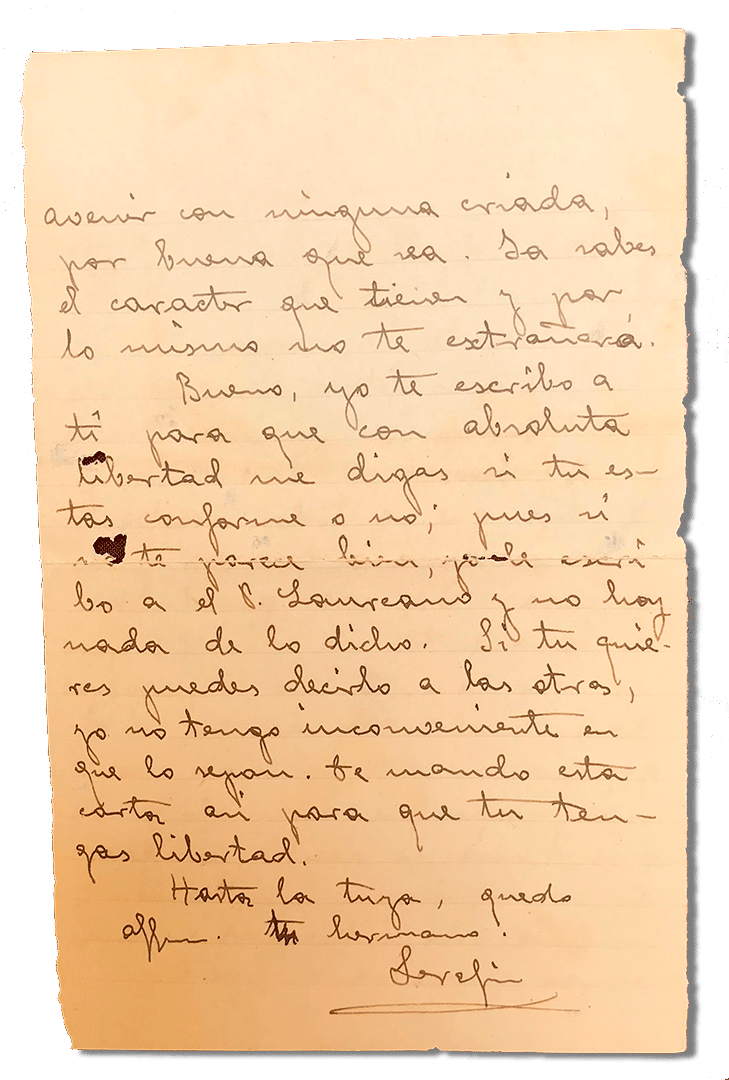 avenir con ninguna criada,
por buena que sea. Ya sabes
el caracter que tienen y por
lo mismo no te extrañará.
Bueno, yo te escribo a
ti para que con absoluta
libertad me digas si tu es-
tas conforme o no; pues si
no te parece bien, yo le escri
bo a el P. Laureano y no hay
nada de lo dicho. Si tu quie-
res puedes decirlo a las otras,
yo no tengo inconveniente en
que lo sepan. Te mando esta
carta así para que tu ten-
gas libertad.
Hasta la tuya, quedo
affm. tu hermano.
Serafin